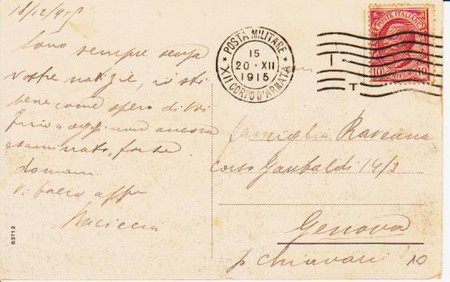 18/12/915
Sono sempre senza
vostre notizie, io sto
bene come spero di voi
fino a oggi non ancora
esaminato, forse
domani
Vi bacio aff.
POSTA MILITARE
15
20 · XII
1915
XII CORPO D'ARMATA
POSTE ITALIANE
10 10
T
famiglia Ravenna
Corso Garibaldi 14/3
Genova
p Chiavari
10
63113